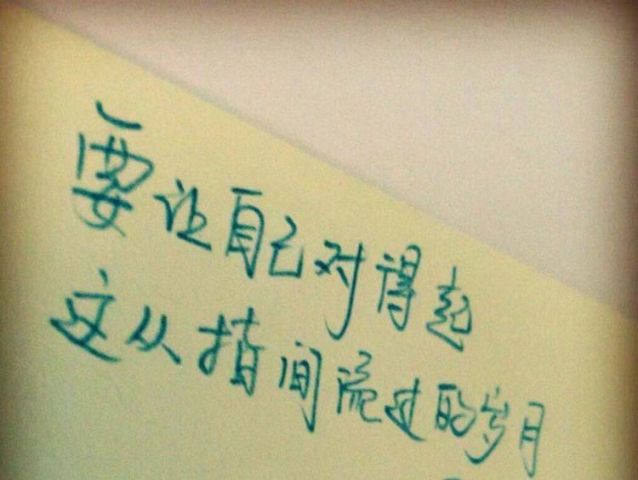 要让自己对得起
这从指间流过的岁月